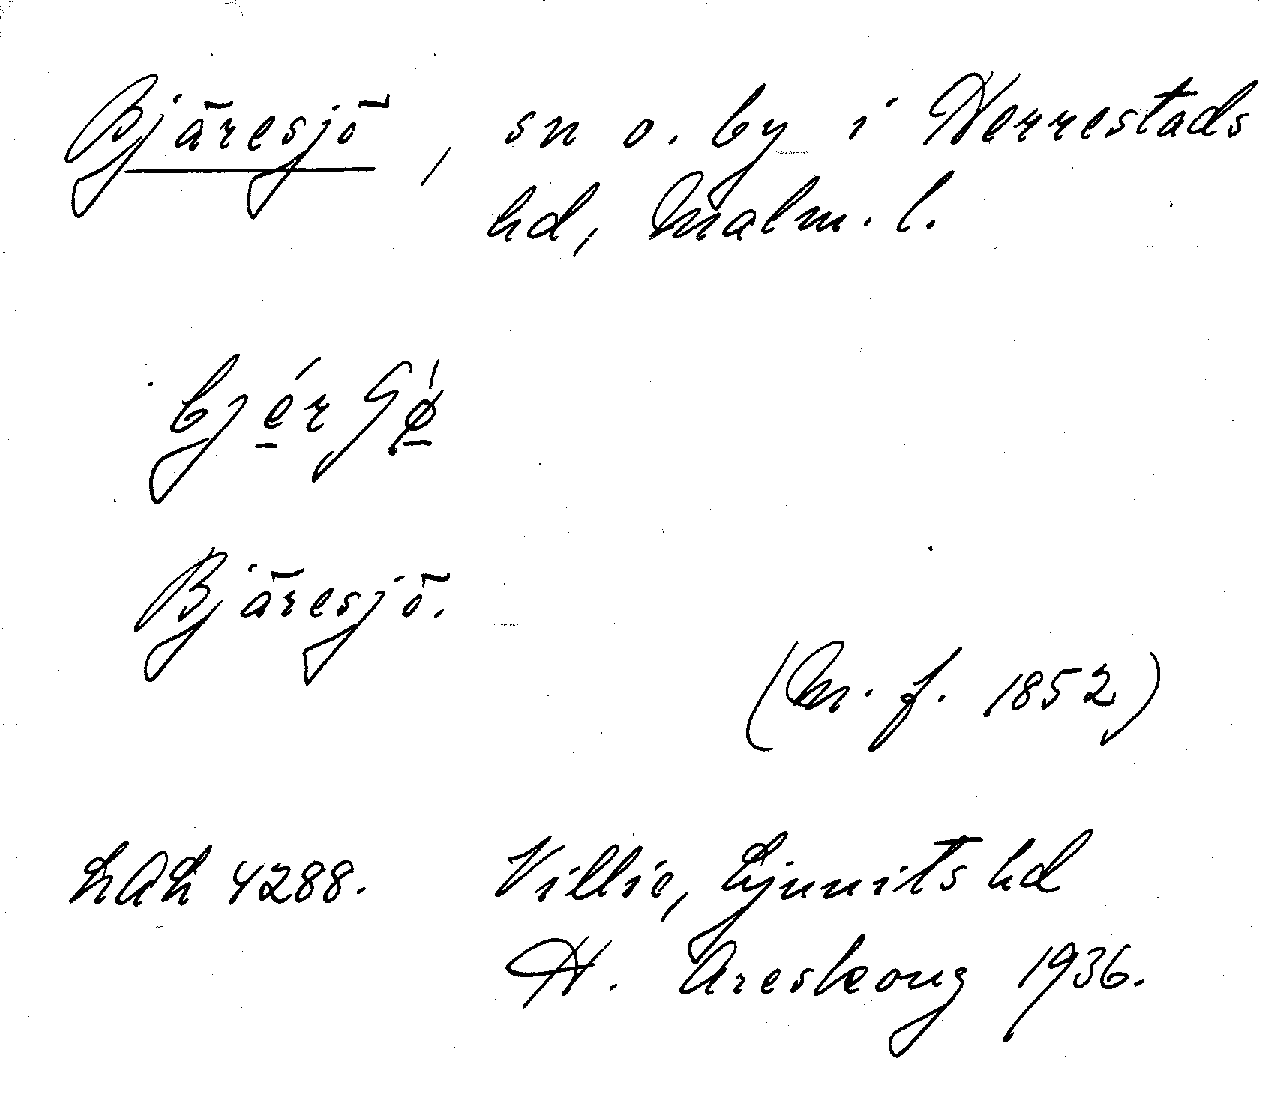 Bjäresjö, sn o. by i Herrestads
hd, Malm. l.
Bjäresjö.
(M. f. 1852)
LAL 4288. Villie, Ljunits hd
H. Areskoug 1936.